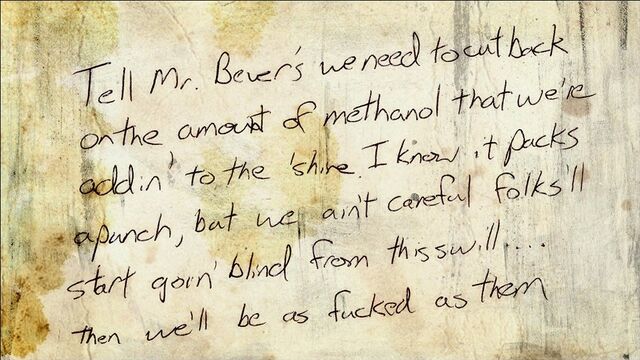 Tell Mr. Bever's we need to cut back
on the amount of methanol that we're
addin' to the 'shine. I know it packs
a punch, but we ain't careful folks'll
start goin' blind from this swill....
then we'll be as fucked as them